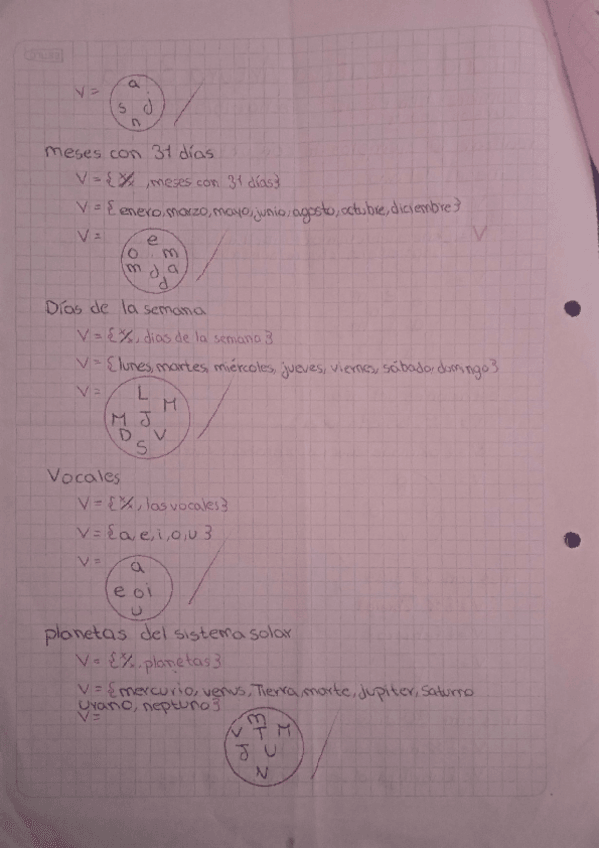 V =
a
s j
n
meses con 31 días
V = {x/x, meses con 31 días}
V = {enero, marzo, mayo, junio, agosto, octubre, diciembre}
V =
e
o m
m j a
d
Días de la semana
V = {x/x, dias de la semana}
V = {lunes, martes, miércoles, jueves, viernes, sábado, domingo}
V =
L
M
M J
D V
S
Vocales
V = {x/x, las vocales}
V = {a, e, i, o, u}
V =
a
e o i
u
planetas del sistema solar
V = {x/x, planetas}
V = {mercurio, venus, Tierra, marte, jupiter, Saturno
Urano, neptuno}
V =
m
V T M
J U
N